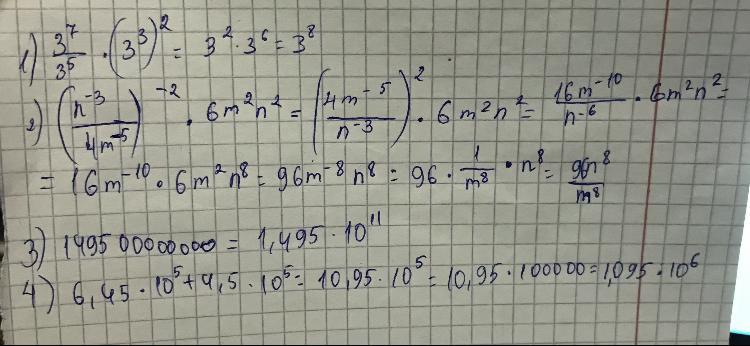 1) 3^7/3^5 · (3^3)^2 = 3^2 · 3^6 = 3^8
2) (n^-3/4m^-5)^-2 · 6m^2n^2 = (4m^-5/n^-3)^2 · 6m^2n^2 = 16m^-10/n^-6 · 6m^2n^2 =
= 16m^-10 · 6m^2n^8 = 96m^-8n^8 = 96 · 1/m^8 · n^8 = 96n^8/m^8
3) 149500000000 = 1,495 · 10^11
4) 6,45 · 10^5 + 4,5 · 10^5 = 10,95 · 10^5 = 10,95 · 100000 = 1,095 · 10^6